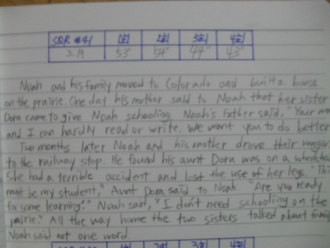 SQR #41 1回 2回 3回 4回
53" 54" 44" 43"
Noah and his family moved to Colorado and built a house
on the prairie. One day his mother said to Noah that her sister
Dora came to give Noah schooling. Noah's father said, "Your mom
and I can hardly read or write. We want you to do better
Two months later Noah and his mother drove their wagon
to the railway stop. He found his aunt Dora was on a wheelchair
She had a terrible accident and lost the use of her legs.
must be my student," Aunt Dora said to Noah. "Are you ready
for some learning?" Noah said, "I don't need schooling on the
prairie." All the way home the two sisters talked about family
Noah said not one word